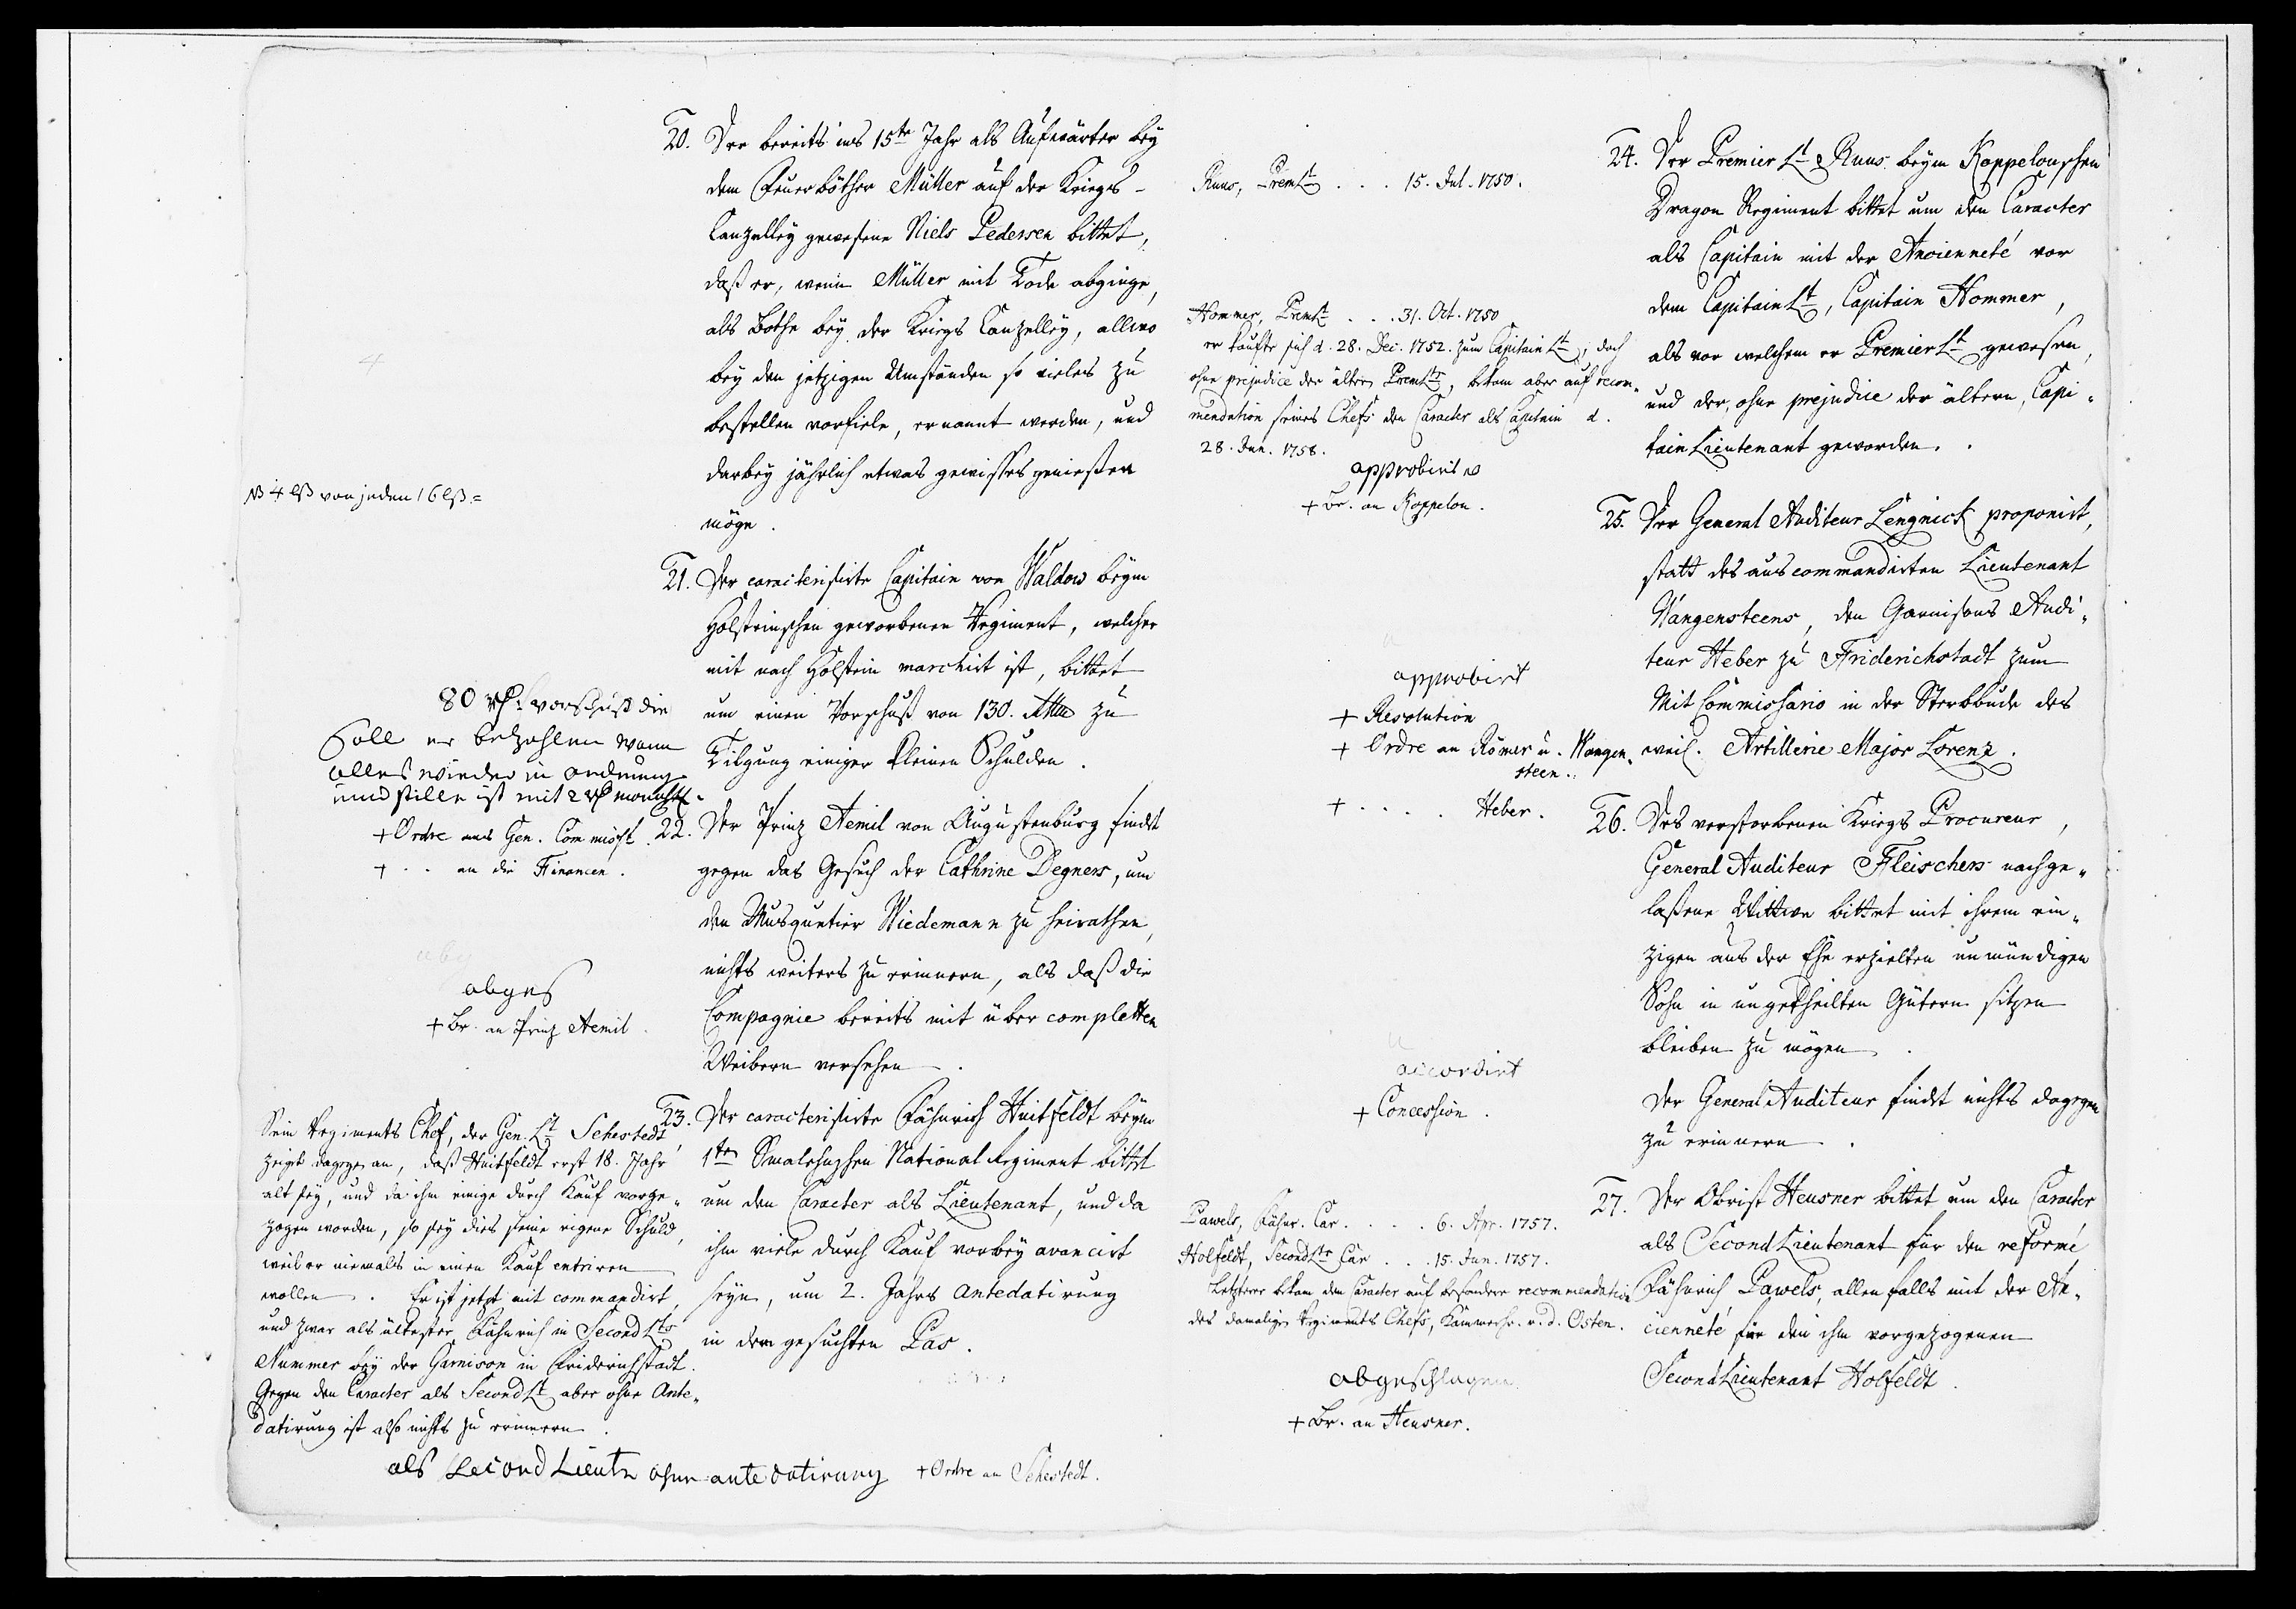 20. Der bereits ins 15te Jahr als Aufwärter bey
dem Feuerböther Müller auf der Kriegs-
Canzelley gewesene Niels Pedersen bittet,
daß er, wenn Müller mit Tode abginge,
als Bothe bey der Kriegs Canzelley, allwo
bey den jetzigen Umständen so vieles zu
bestellen vorfiele, ernannt werden, und
darbey jährlich etwas gewisses genießen
möge.
4 lß von jeden 16 lß =
21. Der caracterisirte Capitain von Waldow beym
Holsteinschen geworbenen Regiment, welcher
mit nach Holstein marchirt ist, bittet
um einen Vorschuß von 130. Rthlr zu
Tilgung einiger kleinen Schulden.
80 rh vorschuß die
soll er bezahlen wann
alles wieder in ordnung
und stille ist mit 2 rh monathl.
+ Ordre ans Gen. Commisst.
+ . . an die Financen.
22. Der Prinz Aemil von Augustenburg findet
gegen das Gesuch der Cathrine Degners, um
den Musquetier Wiedemann zu heirathen,
nichts weiters zu erinnern, als daß die
Compagnie bereits mit über completten
Weibern versehen.
abges
+ Br. an Prinz Aemil.
23. Der caracterisirte Fähnrich Huitfeldt beym
1ten Smalehnschen National Regiment bittet
um den Caracter als Lieutenant, und da
ihm viele durch Kauf vorbey avancirt
seyn, um 2. Jahrs Antedatirung
in dem gesuchten Pas.
Sein Regiments Chef, der Gen. Lt Schestedt,
zeigt dagegen an, daß Huitfeldt erst 18. Jahr
alt sey, und da ihm einige durch Kauf vorge-
zogen worden, so sey dies seine eigene Schuld,
weil er niemals in einen Kauf entriren
wollen. Er ist jetzt mit commandirt,
und zwar als ältester Fähnrich in Second Lts
Nummer bey der Garnison in Friderichstadt.
Gegen den Caracter als Second Lt aber ohne Ante-
datirung ist also nichts zu erinnern.
als Second Lieutn ohne antedatirung + Ordre an Schestedt.
24. Der Premier Lt Ruus beym Koppelouschen
Dragon Regiment bittet um den Caracter
als Capitain mit der Ancienneté vor
dem Capitain Lt, Capitain Hommer,
als vor welchem er Premier Lt gewesen,
und der, ohne prejudice der ältern, Capi-
tain Lieutenant geworden.
Ruus, Prem Lt . . . 15. Jul. 1750.
Hommer, Prem Lt . . . 31. Oct. 1750
er kaufte sich d. 28. Dec. 1752. zum Capitain Lt, doch
ohne prejudice der ältern Prem Lts, bekam aber auf recom-
mendation seines Chefs den Caracter als Capitain d.
28. Jun. 1758.
approbirt
+ Br. an Koppelou.
25. Der General Auditeur Lengnick proponirt,
statt des auscommandirten Lieutenant
Wangensteens, den Garnisons Audi-
teur Heber zu Friderichstadt zum
Mit Commissario in der Sterbbude des
weil. Artillerie Major Lorenz.
approbirt
+ Resolution
+ Ordre an Römer u. Wangen-
steen.
+ . . . Heber.
26. Des verstorbenen Kriegs Procureur,
General Auditeur Fleischers nachge-
laßene Wittwe bittet mit ihrem ein-
zigen aus der Ehe erzielten unmündigen
Sohn in ungetheilten Gütern sitzen
bleiben zu mögen.
Der General Auditeur findet nichts dagegen
zu erinnern.
accordirt
+ Concession.
27. Der Obrist Heusner bittet um den Caracter
als Second Lieutenant für den reformé
Fähnrich Pawels, allenfalls mit der An-
cienneté für den ihm vorgezogenen
Second Lieutenant Holfeldt.
Pawels, Fähnr. Car. . . . 6. Apr. 1757.
Holfeldt, Second Lts Car . . . 15. Jun. 1757.
Letzterer bekam den Caracter auf besondere recommendation
des damaligen Regiments Chefs, Kammerhr. v. d. Osten.
abgeschlagen
+ Br. an Heusner.